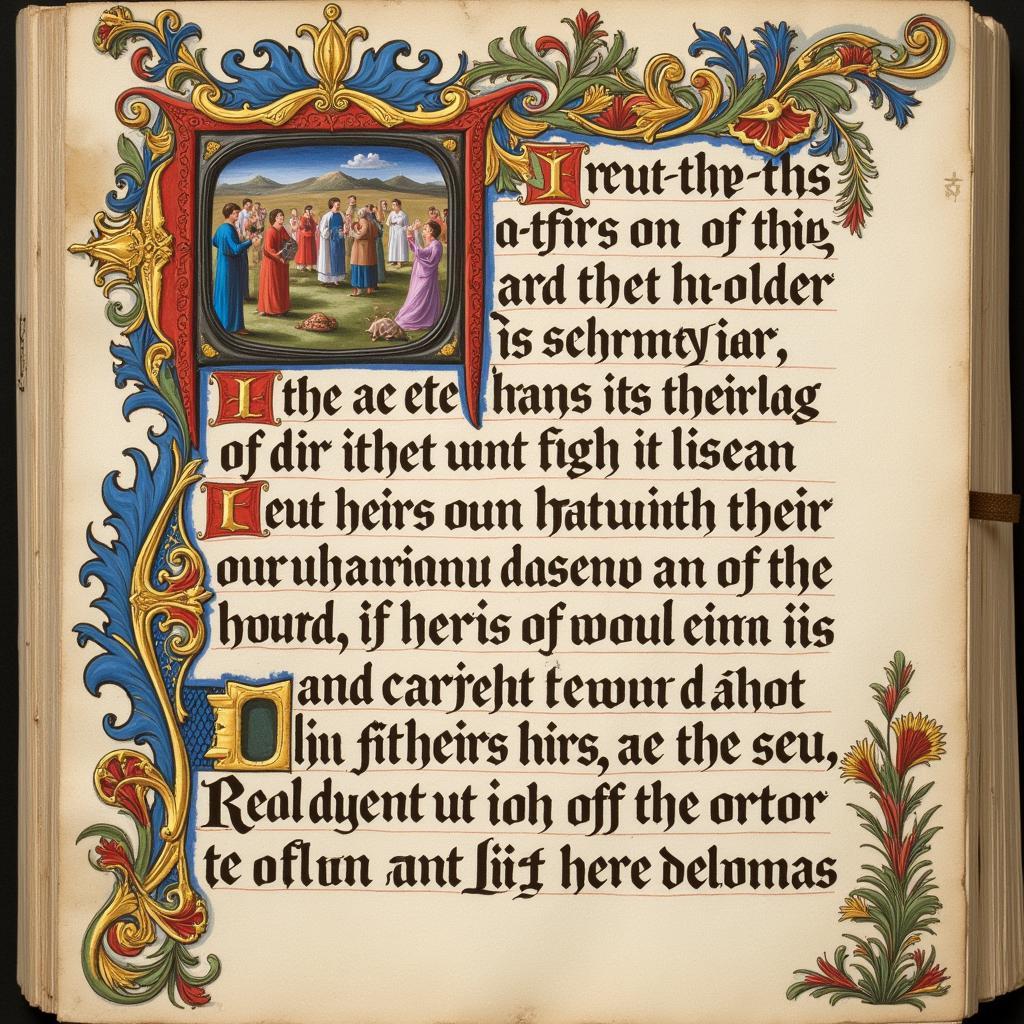 Ireut-thp-ths
a-tfirs on of thig
ard thet hr-older
is sehrmty iar,
I the ac ete hans its theirlag
of dir ithet unt figh it lisean
Leut heirs oun hatuinth their
ouruhairianu daseno an of the
hourd, if heris of woul einn iis
and carjeht tewur d áhot
liu fitheirs hirs, ae the seu,
Real dyent ut ioh off the ortor
te oflun ant here delomas